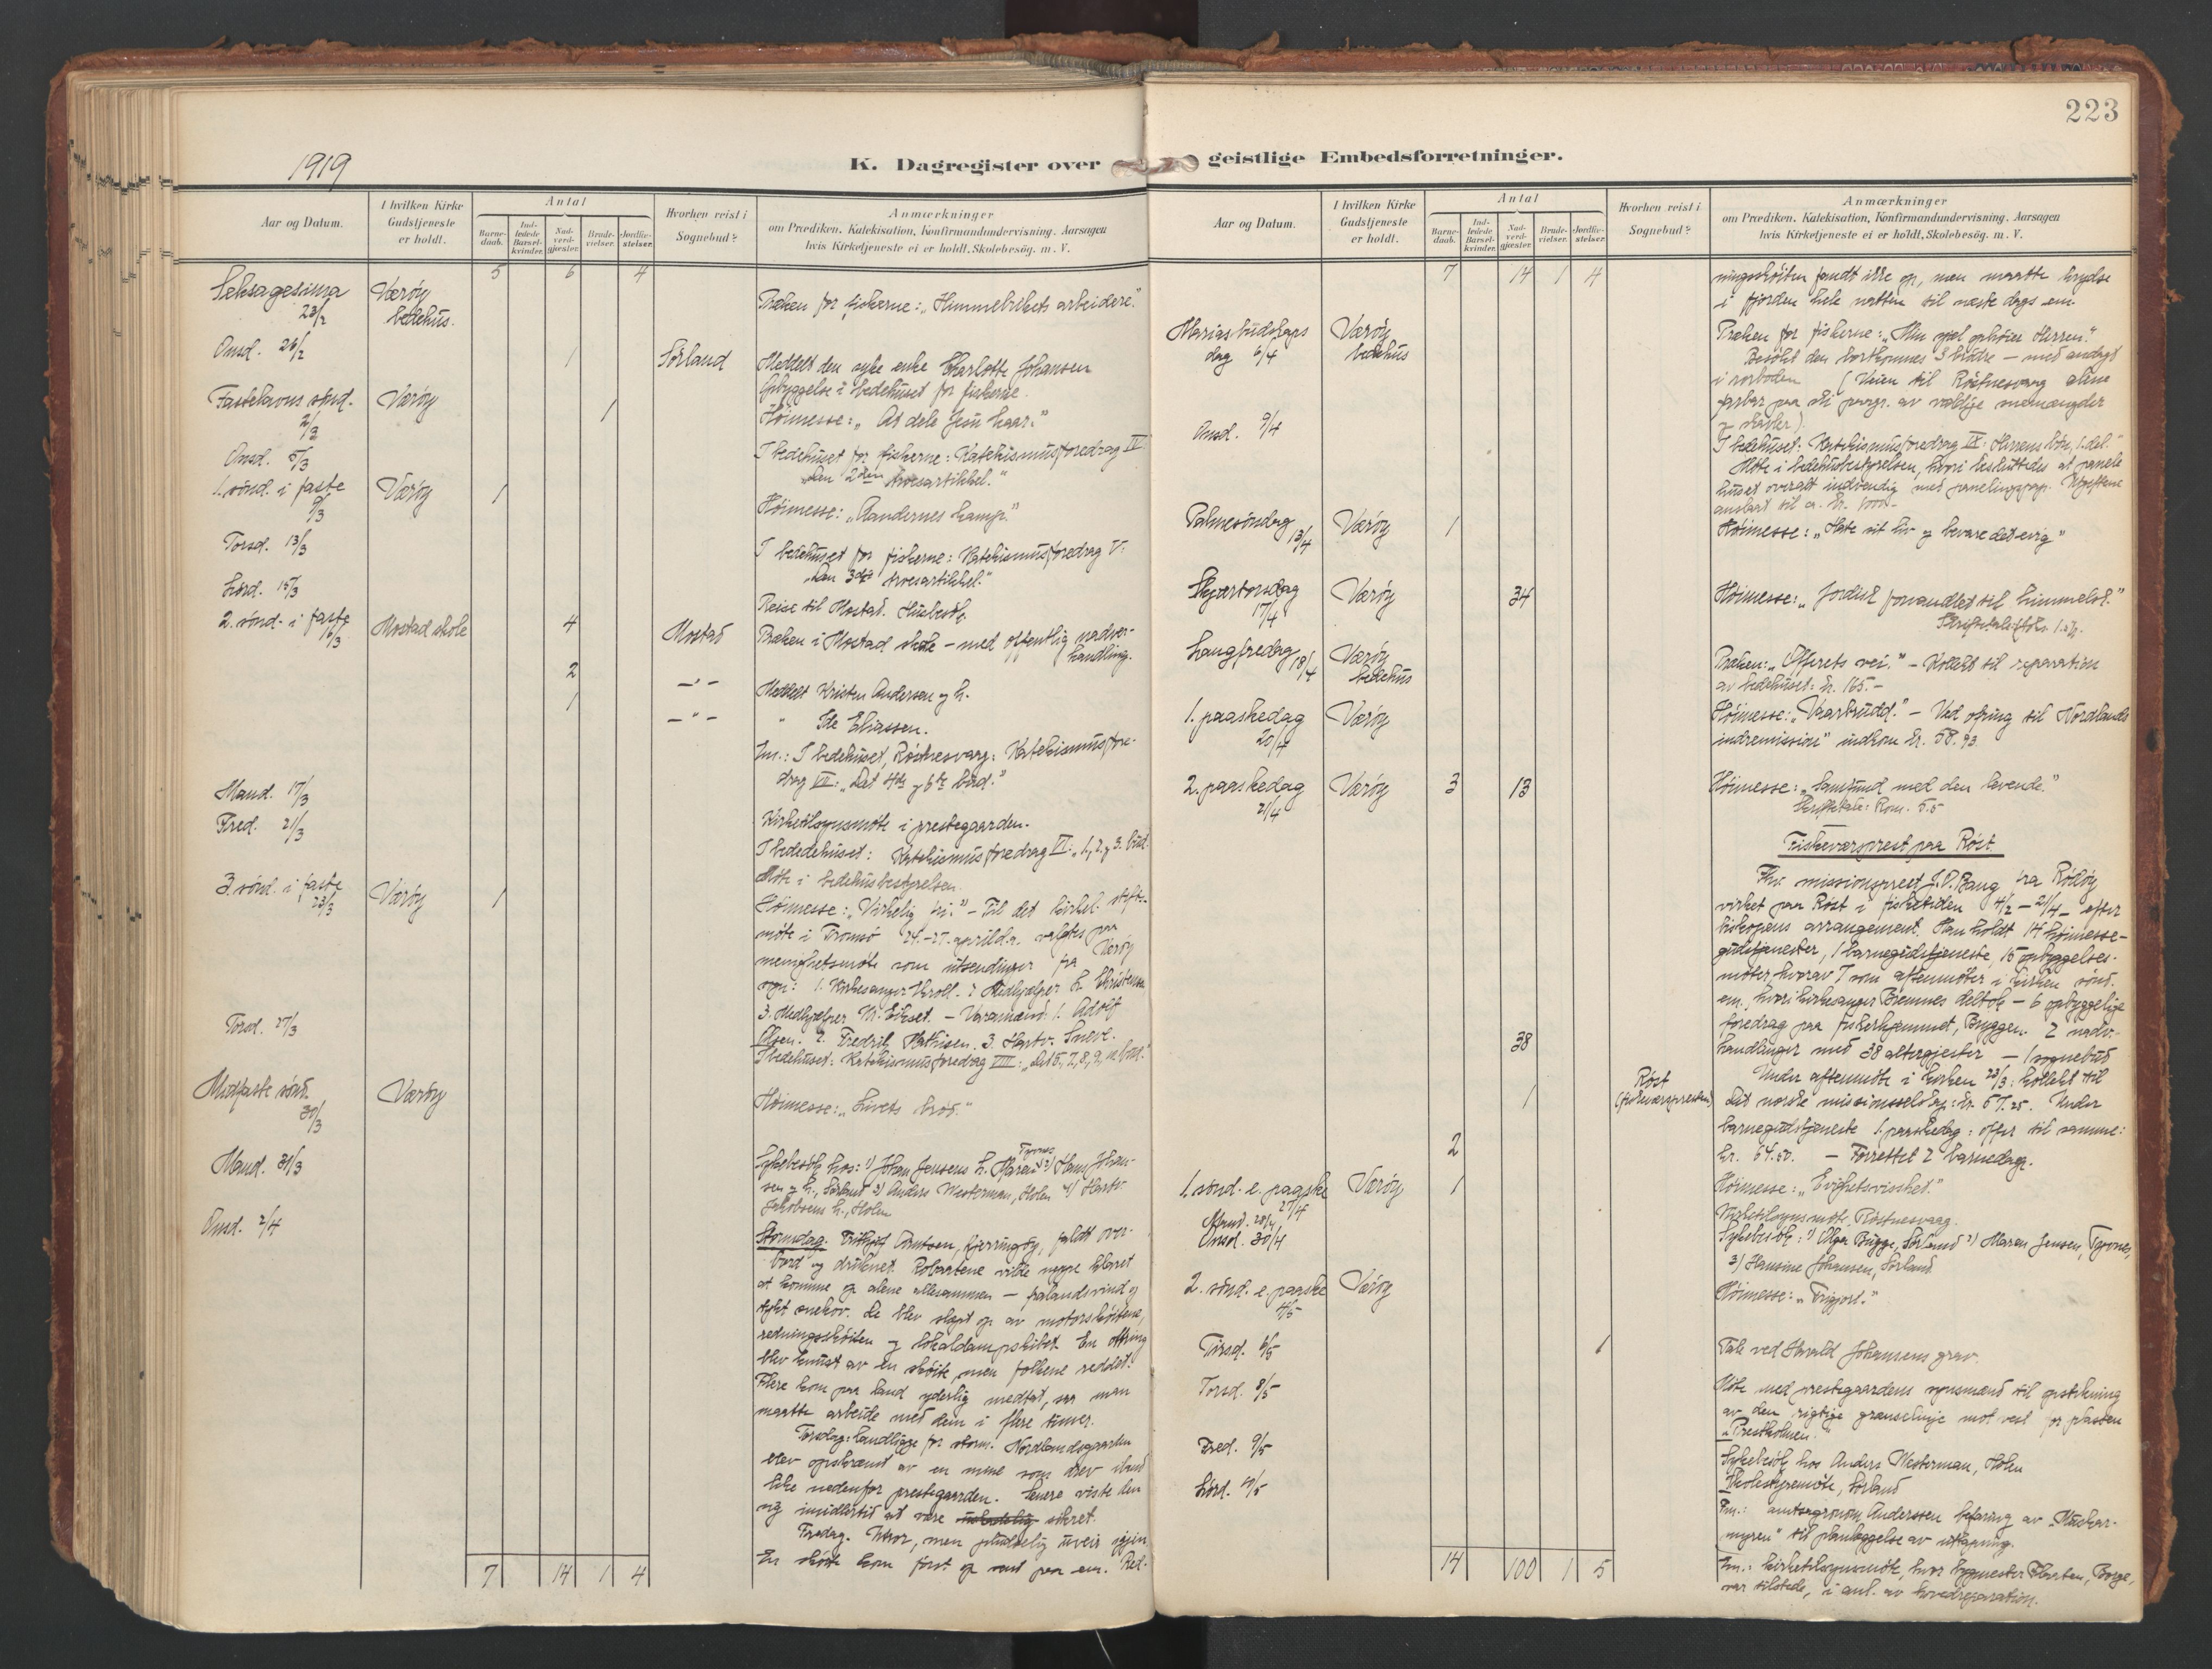 223
1919
K. Dagregister over geistlige Embedsforretninger.
Aar og Datum.
I hvilken Kirke Gudstjeneste er holdt.
Antal
Barne-daab.
Ind-ledede Barsel-kvinder.
Nad-verd-gjester.
Brude-vielser.
Jordfæ-stelser.
Hvorhen reist i Sognebud?
Anmærkninger
om Prædiken, Katekisation, Konfirmandundervisning. Aarsagen
hvis Kirketjeneste ei er holdt. Skolebesög. m. V.
5 6 4
Seksagesima 23/2 Værøy bedehus. Præken for fiskerne: "Himmelrikets arbeidere."
Onsd. 26/2 1 Sörland Meddelt den syke enke Charlotte Johansen
Opbyggelse i bedehuset for fiskerne.
Fastelavns sönd. 2/3 Værøy 1 Höimesse: "At dele Jesu kaar."
Onsd. 5/3 I bedehuset for fiskerne: Katekismusforedrag IV
"Den 2den troesartikkel."
1. sönd. i faste 9/3 Værøy 1 Höimesse: "Aandernes kamp."
Torsd. 13/3 I bedehuset for fiskerne: Katekismusforedrag V:
"Den 3dje troesartikkel."
Lörd. 15/3 Reise til Mostad. Husbesök.
2. sönd. i faste 16/3 Mostad skole 4 Mostad Præken i Mostad skole - med offentlig nadver-
handling.
2 - " - Meddelt Kristen Andersen og h.
1 - " - " Ide Eliassen.
Em.: I bedehuset, Röstnesvaag: Katekismusfore-
drag VII: "Det 4de og 6te bud."
Mand. 17/3 Kirketilsynsmöte i prestegaarden.
Fred. 21/3 I bededehuset: Katekismusforedrag VI: "1, 2. og 3. bud.
Möte i bedehusbestyrelsen.
3 sönd. i faste 23/3 Værøy 1 Höimesse: "Virkelig fri." - Til det kirkel. stifts-
möte i Tromsö 24.-27. april d.a. valgtes paa
menighetsmöte som utsendinger fra Værøy
sogn: 1. Kirkesanger Kroll. - 2 Medhjælper L. Christensen
3. Medhjælper Kr. Ekset. - Varamænd: 1. Adolf
Olsen. 2. Fredrik Mathisen. 3. Hartv. Sneve.
Torsd. 27/3 I bedehuset: Katekismusforedrag VIII: "Det 5, 7, 8, 9, 10 bud."
Midfaste sönd. 30/3 Værøy Höimesse: "Livets bröd."
Mand. 31/3 Sykebesök hos: 1) Johan Jensens h. Maren Tyvnes 2) Hans Johan-
sen og h., Sörland 3) Anders Westerman, Holen 4) Hartv.
Jakobsens h., Holen
Onsd. 2/4 Stormdag. Arntsen, Kjerringöy, faldt over-
bord og druknet. Robaatene vilde neppe klaret
at komme op alene allesammen - fralandsvind og
tykt snekov. De blev slæpt op av motorskøitene,
redningsskøiten og lokaldampskibet. En ottring
blev knust av en skøite, men folkene reddet.
Flere kom paa land yderlig medtat, saa man
maatte arbeide med dem i flere timer.
Torsdag: landligge for storm. Nordlandsgaarden
blev opskræmt av en mine som drev iland
like nedenfor prestegaarden. Senere viste den
sig imidlertid at være sikret.
Fredag. Utror, men pludselig uveir igjen.
En skøite kom först op sent paa em. Red-
7 14 1 4
Aar og Datum.
I hvilken Kirke Gudstjeneste er holdt.
Antal
Barne-daab.
Ind-ledede Barsel-kvinder.
Nad-verd-gjester.
Brude-vielser.
Jordfæ-stelser.
Hvorhen reist i Sognebud?
Anmærkninger
om Prædiken. Katekisation, Konfirmandundervisning. Aarsagen
hvis Kirketjeneste ei er holdt. Skolebesög. m. V.
7 14 1 4 ningsskøiten fandt ikke op, men maatte krydse
i fjorden hele natten til næste dags em.
Marias budskaps dag 6/4 Værøy bedehus Præken for fiskerne: "Min sjæl ophöier Herren."
Besökt den bortkomnes 3 brödre - med andagt
i rorboden (Veien til Röstnesvaag alene
farbar paa ski pga. av vældige snemængder
og skavler).
Onsd. 9/4 I bedehuset: Katekismusforedrag IX: "Herrens bön, 1. del."
Möte i bedehusbestyrelsen, hvori besluttedes at panele
huset overalt indvendig med panelingspap. Utgiftene
anslaat til ca. kr. 1000.-
Palmesöndag 13/4 Værøy 1 Höimesse: "Hate sit liv og bevare det evig"
Skjærtorsdag 17/4 Værøy 34 Höimesse: "Jordisk forvandlet til himmelsk."
Langfredag 18/4 Værøy bedehus Præken: "Offerets vei." - Kollekt til reparation
av bedehuset: kr. 165.-
1. paaskedag 20/4 Værøy Höimesse: "Vaarbrudd." - Ved ofring til "Nordlands
indremission" indkom kr. 58.93.
2. paaskedag 21/4 Værøy 3 13 Höimesse: "Samfund med den levende."
Skriftetale: Rom. 5.5
Fiskeværsprest paa Röst.
Fhv. missionsprest J. D. Bang fra Rödöy
virket paa Röst i fisketiden 4/2 - 21/4 - efter
biskopens arrangement. Han holdt 14 höimesse-
gudstjenester, 1 barnegudstjeneste, 15 opbyggelses-
möter, hvorav 7 som aftenmöter i kirken sönd.
em., hvori kirkesanger Bremnes deltok - 6 opbyggelige
foredrag paa fiskerhjemmet, Bryggen. 2 nadv.-
38 handlinger med 38 altergjester - 1 sognebud
Under aftenmöte i kirken 23/3: kollekt til
1 Röst (fiskeværspresten) Det norske missionsselskap: kr. 57.25. Under
barnegudstjeneste 1. paaskedag: offer til samme:
2 kr. 64.50. - Forrettet 2 barnedaap.
1. sönd. e. paaske 27/4 Værøy 1 Höimesse: "Evighetsvisshet."
Mand. 28/4 Kirketilsynsmöte, Röstnesvaag.
Onsd. 30/4 Sykebesök: 1) Olga Bugge, Sörland 2) Maren Jensen, Tyvnes,
3) Hansine Johansen, Sörland
2. sönd. e. paaske 4/5 Værøy Höimesse: "Frigjort."
Tirsd. 6/5 1 Tale ved Harald Johansens grav.
Torsd. 8/5 Möte med prestegaardens opsmænd til opstikning
av den rigtige grænselinje mot vest for plassen
"Prestholmen."
Fred. 9/5 Sykebesök hos Anders Westerman, Holen
Skolestyremöte, Sörland
Lörd. 10/5 Fm.: amtsagronom Anderssen befaring av
myren" til planlæggelse av uttapning.
Em.: kirketilsynsmöte, hvor bygmester Borge,
var tilstede, i anl. av hovedreparation.
14 100 1 5